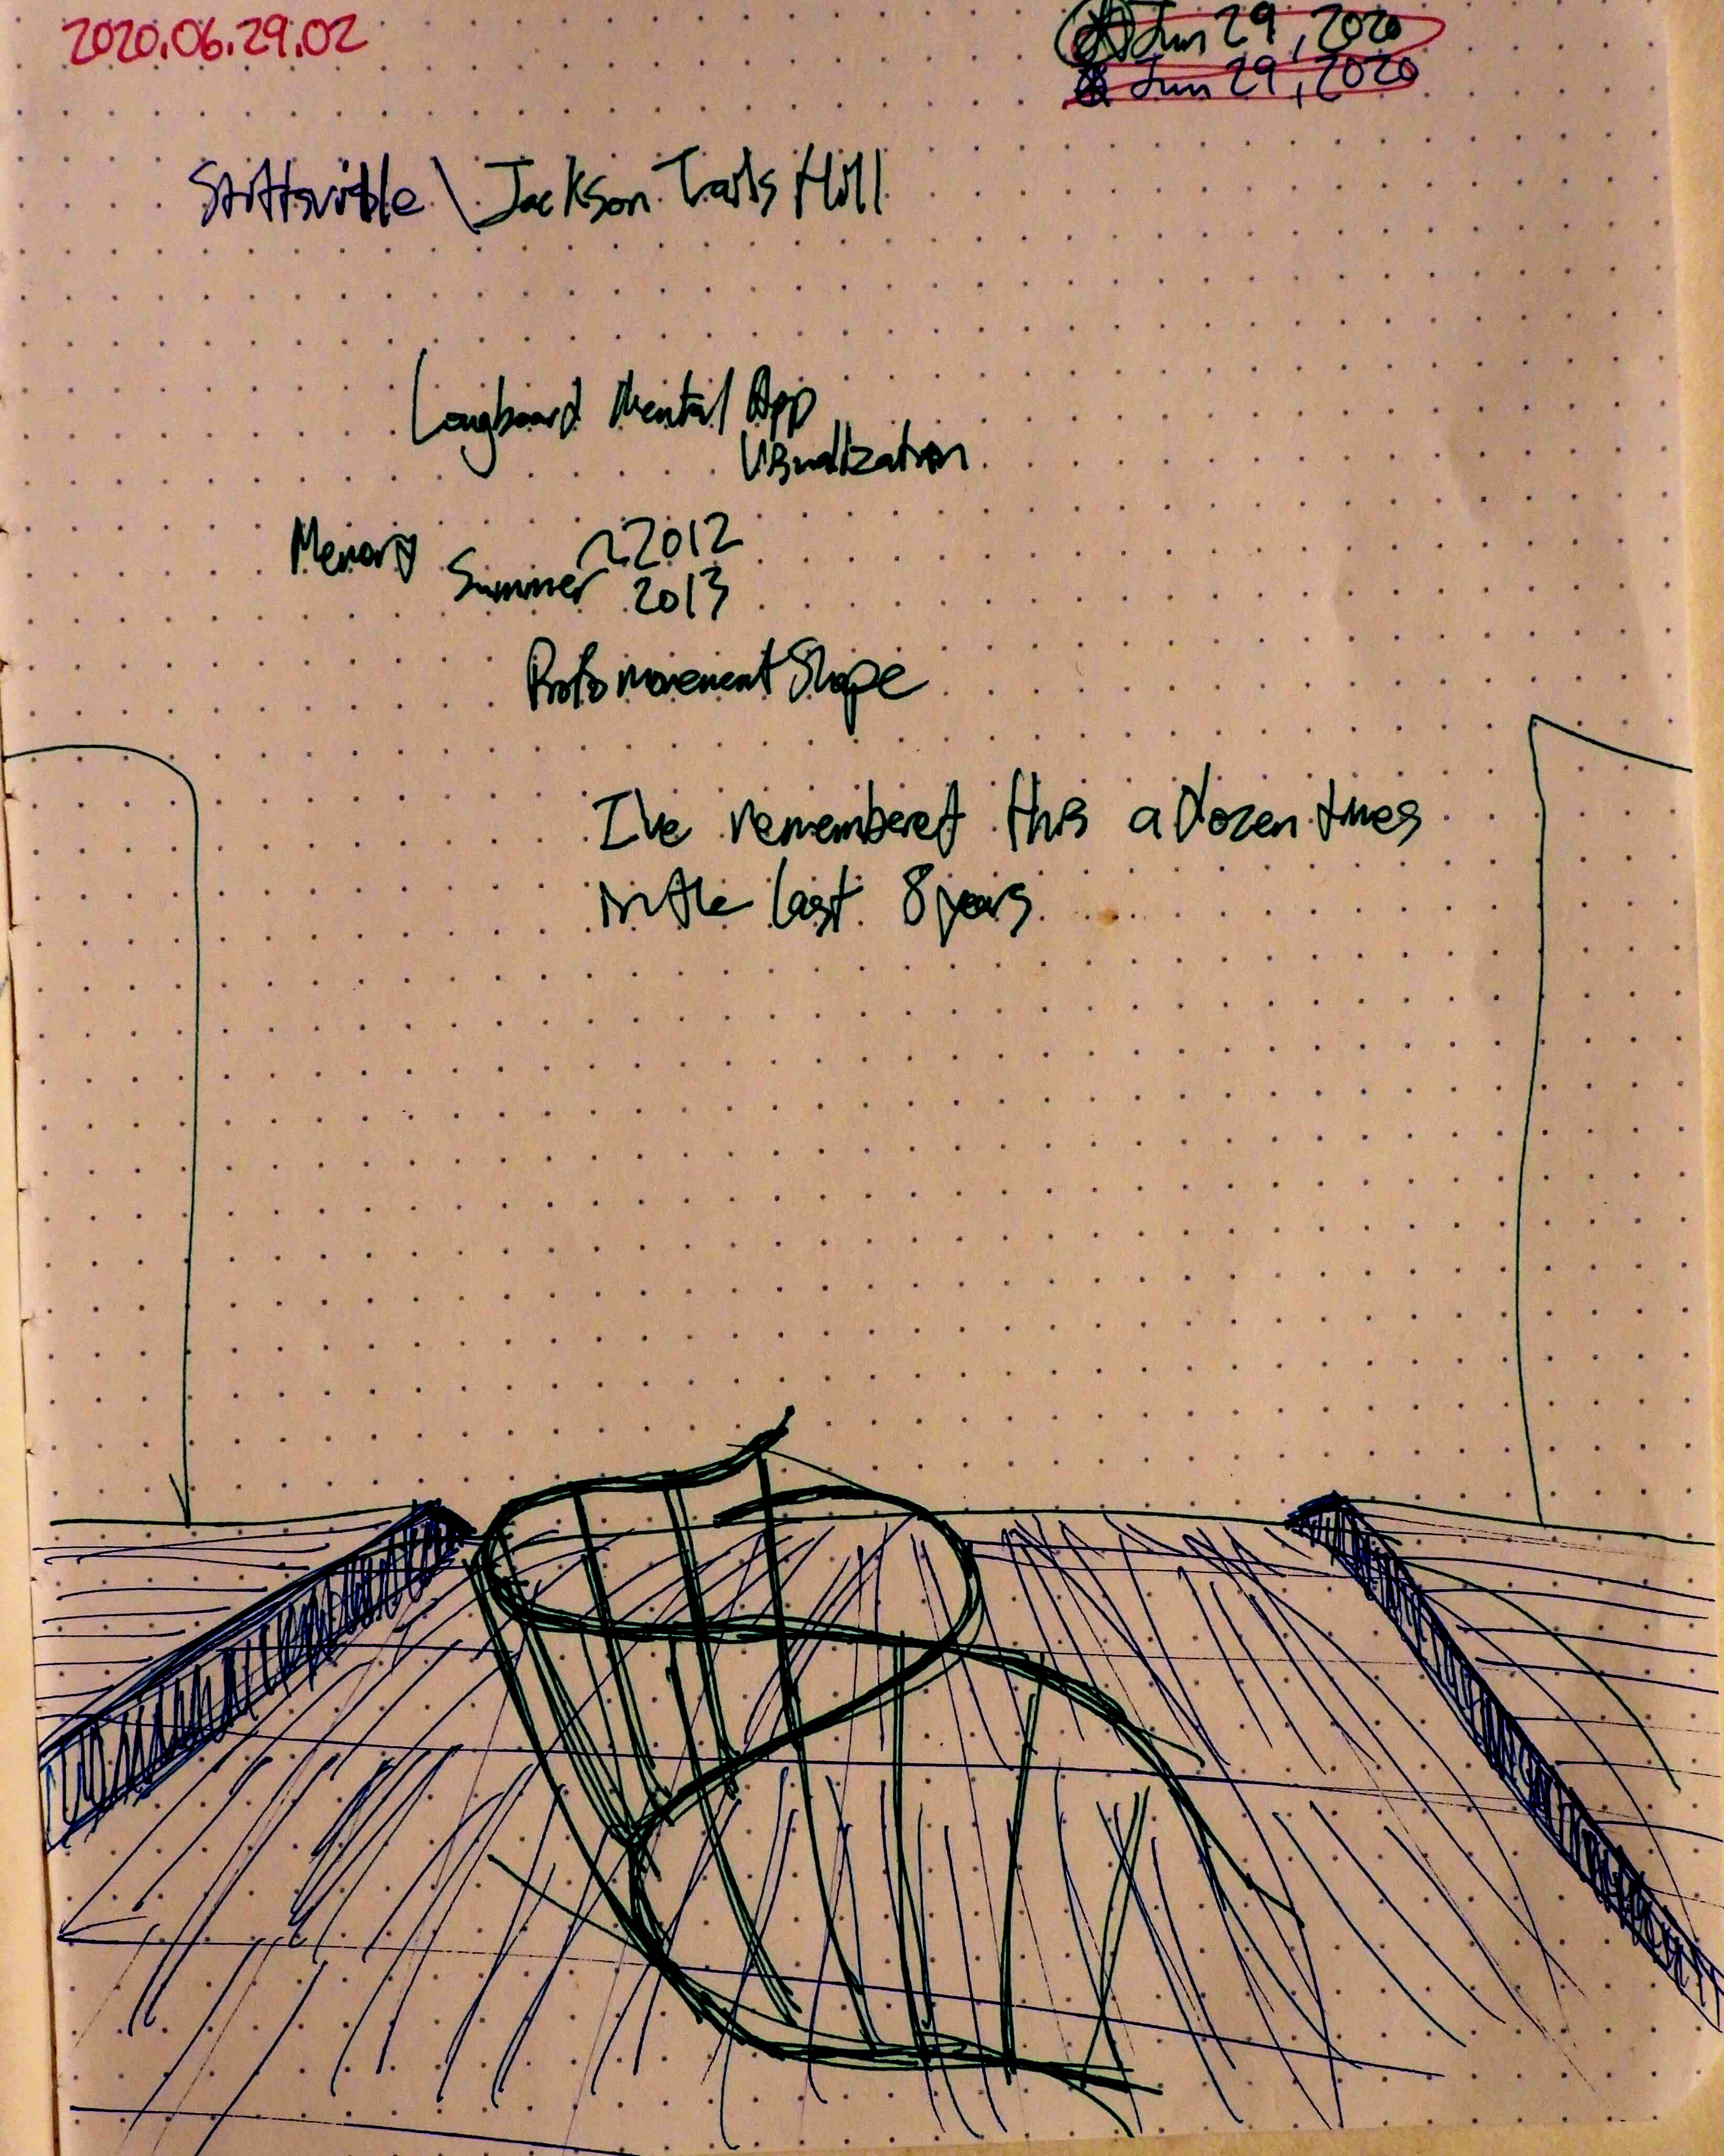 2020.06.29.02
Jun 29, 2020
Jun 29, 2020
Stittsville \ Jackson Trails Hill
Longboard Mental App
Visualization
Memory
Summer ~2012
2013
Proto movement Shape
I've remembered this a dozen times
in the last 8 years.